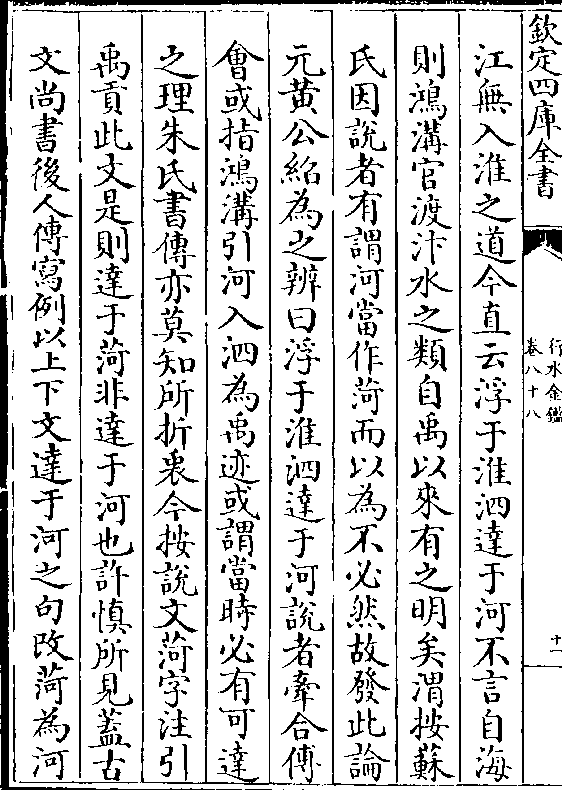 欽定四庫全書
行水金鑑
卷八十八
十一
江無入淮之道今直云浮于淮泗達于河不言自海
則鴻溝官渡汴水之類自禹以來有之明矣渭按蘇
氏因說者有謂河當作菏而以為不必然故發此論
元黄公紹為之辨曰浮于淮泗達于河說者牽合傅
㑹或指鴻溝引河入泗為禹迹或謂當時必有可達
之理朱氏書傳亦莫知所折衷今按說文菏字注引
禹貢此文是則達于菏非達于河也許慎所見蓋古
文尚書後人傳寫例以上下文達于河之句改菏為河